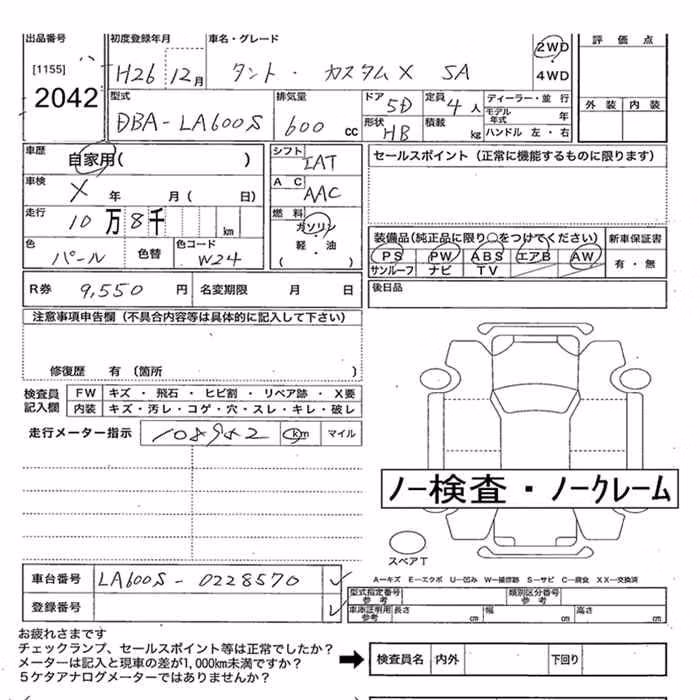 出品番号 初度登録年月 車名・グレード 2WD 評価点
[1155] H26 12月 タント・カスタムX SA ・ 4WD
2042 型式 排気量 ドア 5D 定員 4人 ディーラー・並行 外装 内装
DBA-LA600S 600 cc 形状 HB 積載 kg モデル年式 年
ハンドル 左・右
車歴 自家用( ) シフト IAT セールスポイント（正常に機能するものに限ります）
車検 X 年 月( 日) AC AAC
走行 10万8千 km 燃料 ガソリン・軽・油 ( ) 装備品(純正品に限り○をつけてください) 新車保証書
色 パール 色替 色コード W24 PS PW ABS エアB AW 有・無
サンルーフ ナビ TV
R券 9,550円 名変期限 月 日 後日品
注意事項申告欄（不具合内容等は具体的に記入して下さい）
修復歴 有（箇所 ）
検査員記入欄 FW キズ・飛石・ヒビ割・リペア跡・X要
内装 キズ・汚レ・コゲ・穴・スレ・キレ・破レ
走行メーター指示 108982 km マイル
ノー検査・ノークレーム
スペアT
車台番号 LA600S-0228570 ✓ A－キズ E－エクボ U－凹み W－補修跡 S－サビ C－腐食 XX－交換済
登録番号 ✓ 型式指定番号参考 類別区分番号参考
車庫証明用参考 長さ cm 幅 cm 高さ cm
お疲れさまです
チェックランプ、セールスポイント等は正常でしたか？
メーターは記入と現車の差が1,000km未満ですか？ ➡ 検査員名 内外 下回り
５ケタアナログメーターではありませんか？